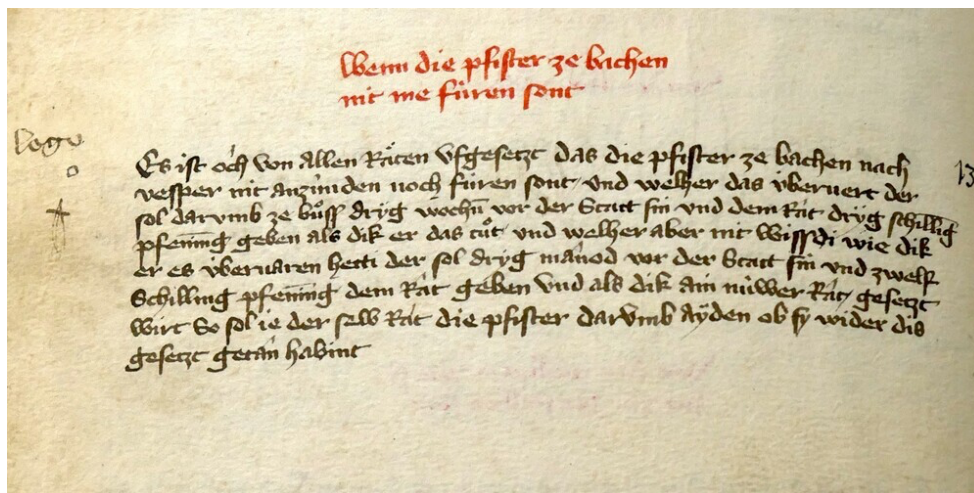 Wenn die pfister ze bachen
nit me fúren sont
lego
Es ist och von Allen Råten vfgesetzt das die pfister ze bachen nach
vesper nit anzúnden noch fúren sont, vnd welher das v́beruert der
sol darvmb ze bůss dryg wochn̄ vor der Statt sin vnd dem Rat dryg schilling
pfening geben als dik er das tůt vnd welher aber nit wissdi wie dik
er es v́beruaren hetti der sol dryg mánod vor der Statt sin vnd zwelf
Schilling pfening dem Rát geben Vnd als dik ain núwer Rát, gesetzt
wirt So sol ie der selb Rát die pfister darvmb aÿden ob sy wider dis
gesetzt getán habint
13